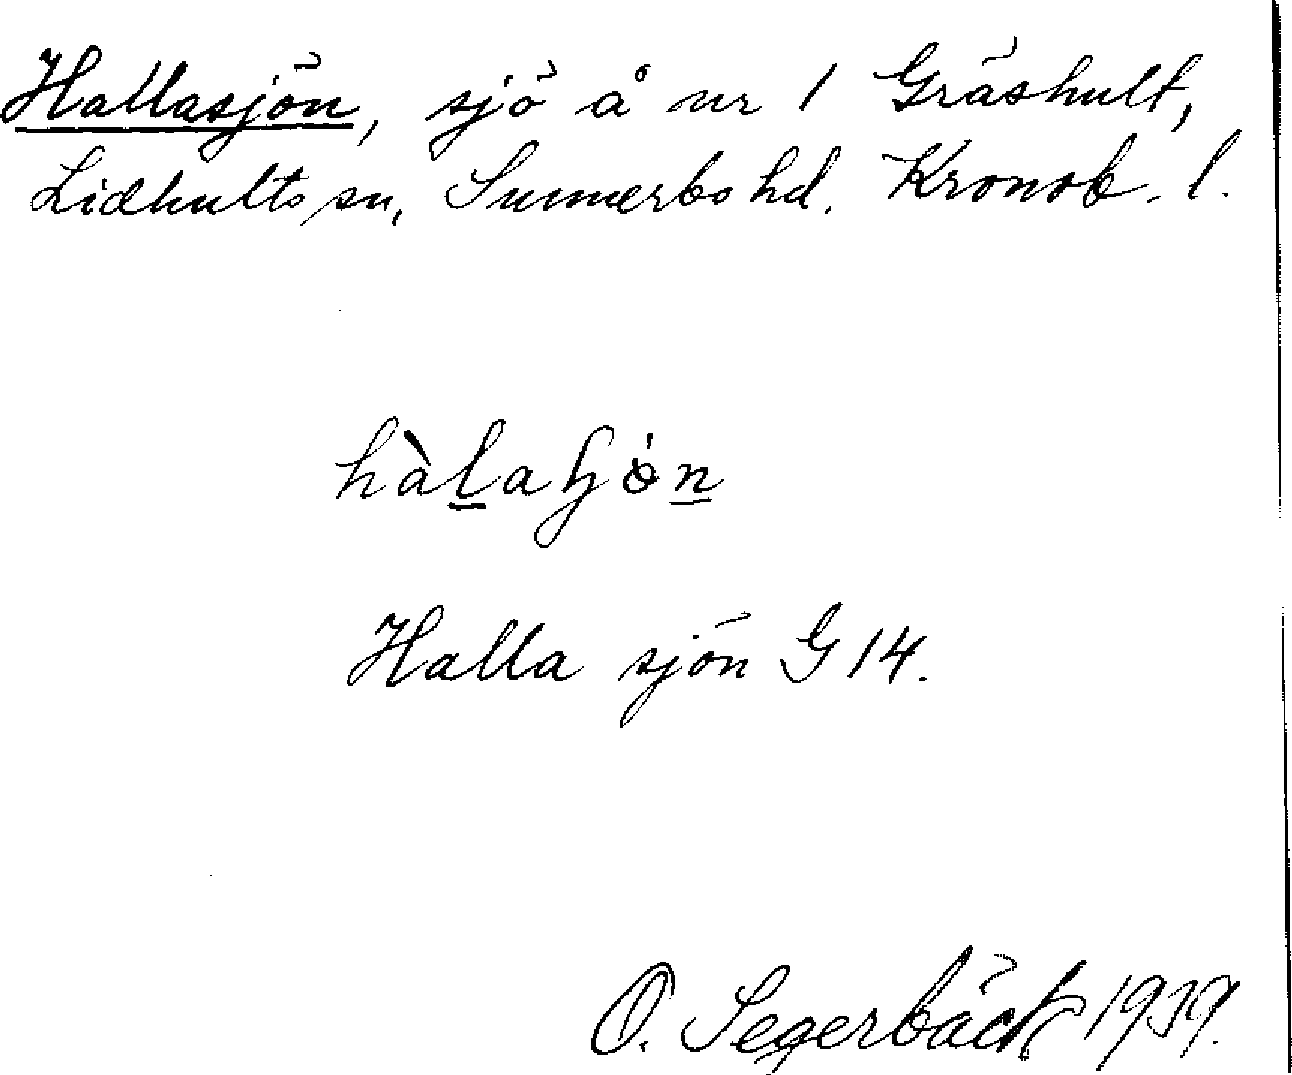 Hallasjön, sjö å nr 1 Gräshult,
Lidhults sn, Sunnerbo hd. Kronob. l.
hàlaɧön
Halla sjön G 14.
O. Segerbäck 1939.